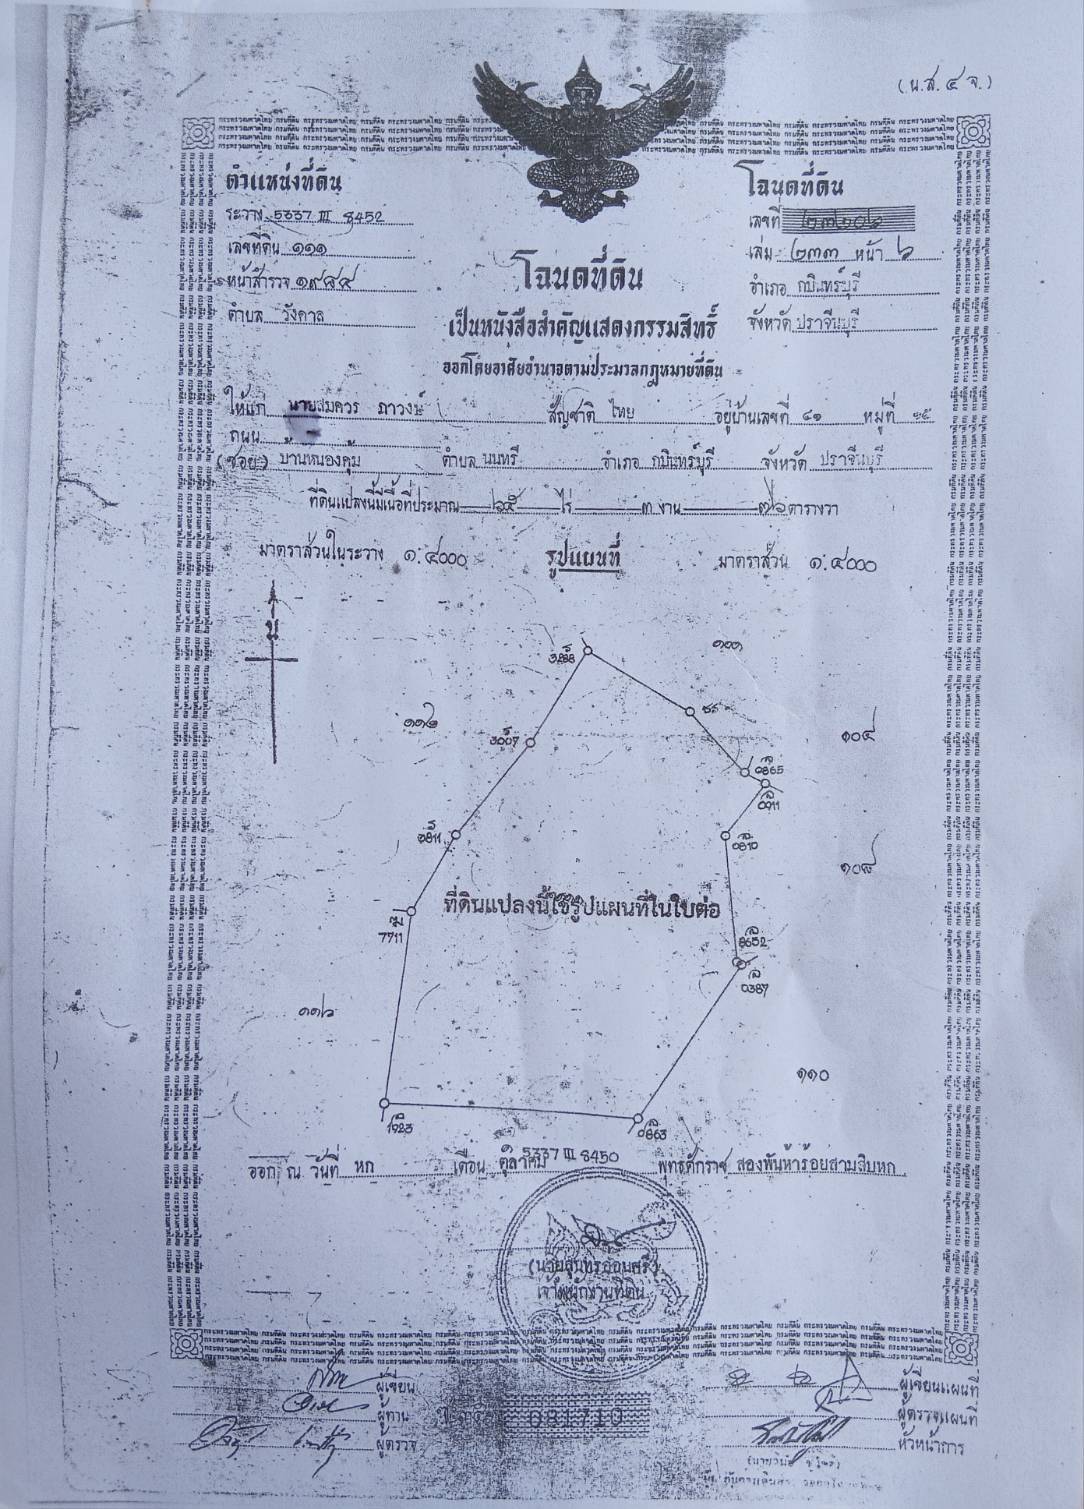 (น.ส. ๔ จ.)
ตำแหน่งที่ดิน
ระวาง 5337 III 8452
เลขที่ดิน ๑๑๑
หน้าสำรวจ ๑๙๘๔
ตำบล วังดาล
โฉนดที่ดิน
เลขที่
เล่ม ๒๓๓ หน้า ๖
อำเภอ กบินทร์บุรี
จังหวัด ปราจีนบุรี
โฉนดที่ดิน
เป็นหนังสือสำคัญแสดงกรรมสิทธิ์
ออกโดยอาศัยอำนาจตามประมวลกฎหมายที่ดิน
ให้แก่ นายสมควร ภาวงษ์ สัญชาติ ไทย อยู่บ้านเลขที่ ๔๑ หมู่ที่ ๑๕
ถนน
(ซอย) บ้านหนองคุ้ม ตำบล นนทรี อำเภอ กบินทร์บุรี จังหวัด ปราจีนบุรี
ที่ดินแปลงนี้มีเนื้อที่ประมาณ ๖๕ ไร่ ๓ งาน ๗๖ ตารางวา
มาตราส่วนในระวาง ๑:๔๐๐๐ รูปแผนที่ มาตราส่วน ๑:๔๐๐๐
น
3288
๑๑๒
3007
๑๐๔
0865
0911
0811
0810
๑๐๘
ที่ดินแปลงนี้ใช้รูปแผนที่ในใบต่อ
7711
8652
0387
๑๑๖
๑๑๐
1923
0863
5337 III 8450
ออก ณ วันที่ หก เดือน ตุลาคม พุทธศักราช สองพันห้าร้อยสามสิบหก
เจ้าพนักงานที่ดิน
ผู้เขียน
ผู้ทาน
ผู้ตรวจ
081710
ผู้เขียนแผนที่
ผู้ตรวจแผนที่
หัวหน้าการ